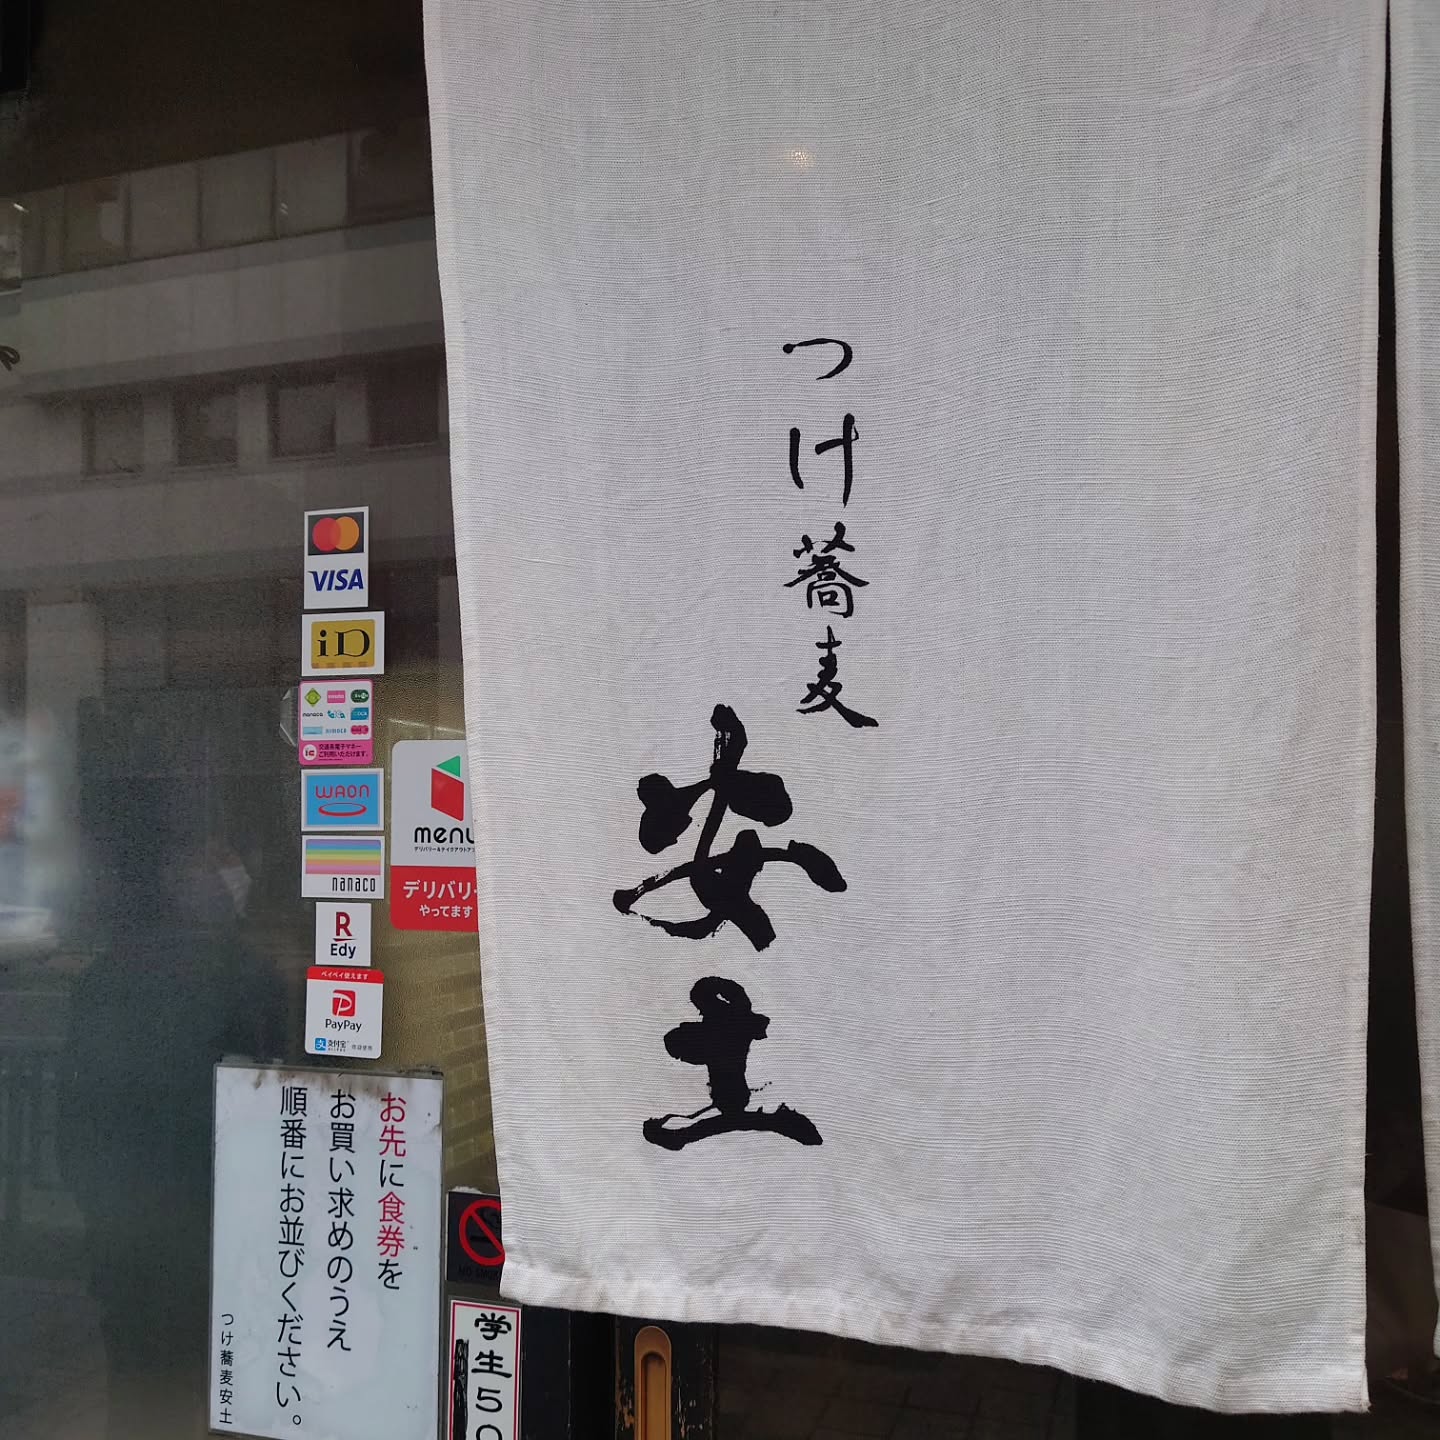 つけ蕎麦
安土
VISA
iD
nanaco
交通系電子マネー
ご利用いただけます。
WAON
nanaco
R
Edy
ペイペイ使えます
PayPay
支付宝
menu
デリバリー
やってます
お先に食券を
お買い求めのうえ
順番にお並びください。
つけ蕎麦安土
NO SMOK
学生50